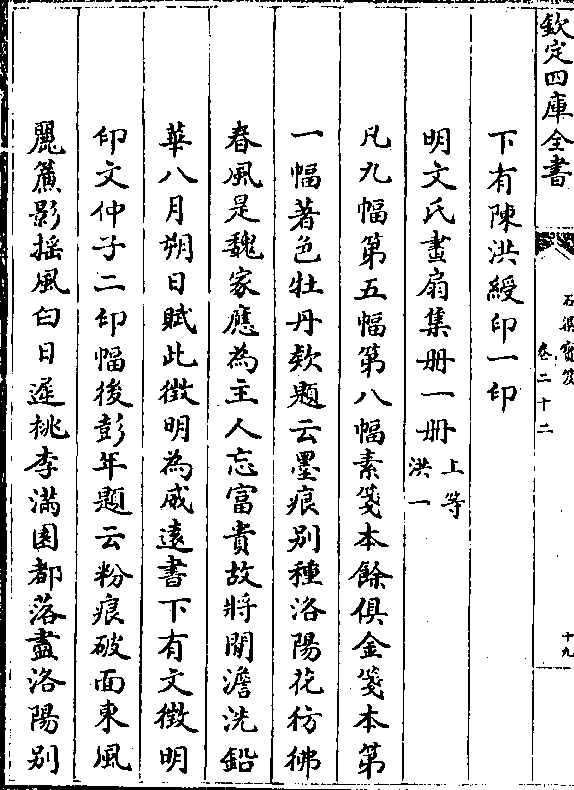 欽定四庫全書
石渠寶笈
卷二十二
十九
下有陳洪綬印一印
明文氏畫扇集冊一冊 上等洪一
凡九幅第五幅第八幅素箋本餘俱金箋本第
一幅著色牡丹欵題云墨痕别種洛陽花彷彿
春風是魏家應為主人忘富貴故將閒澹洗鉛
華八月朔日賦此徵明為咸逺書下有文徵明
印文仲子二印幅後彭年題云粉痕破面東風
麗簾影摇風白日遲桃李滿園都落盡洛陽别